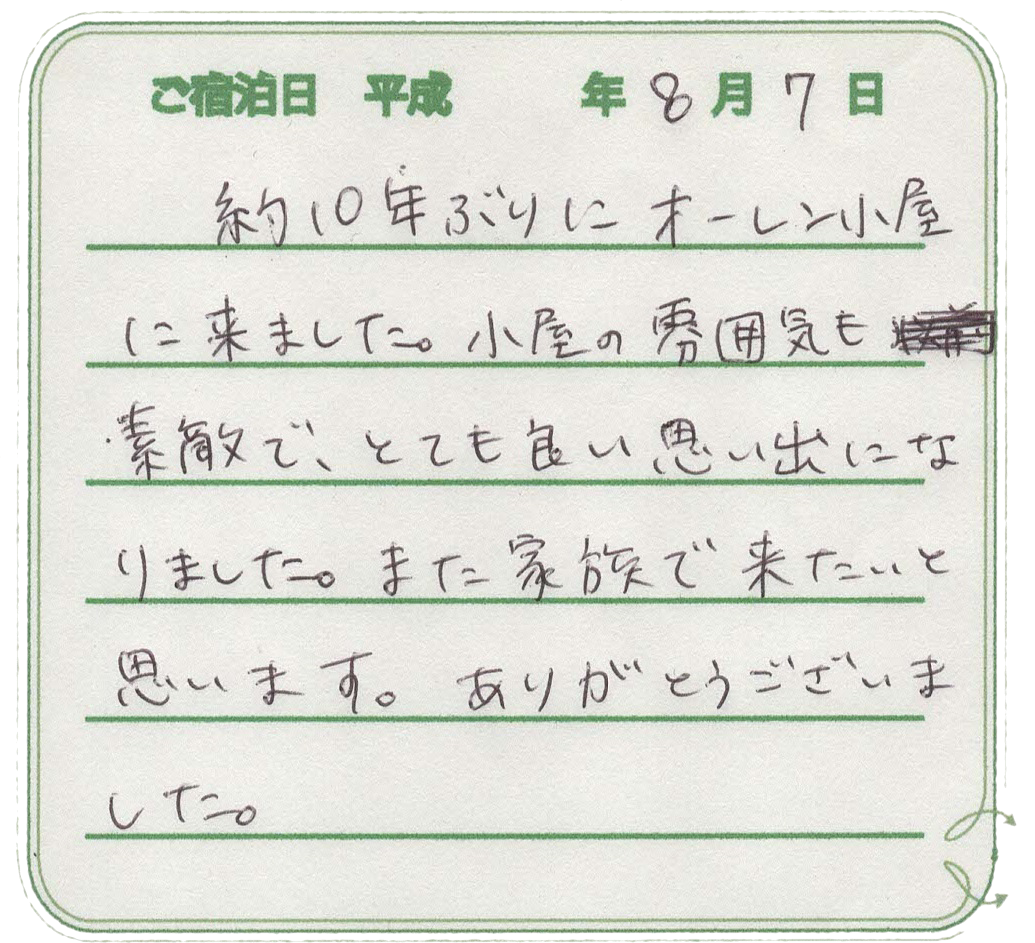 ご宿泊日 平成 年 8 月 7 日
約10年ぶりにオーレン小屋
に来ました。小屋の雰囲気も
素敵で、とても良い思い出にな
りました。また家族で来たいと
思います。ありがとうございま
した。